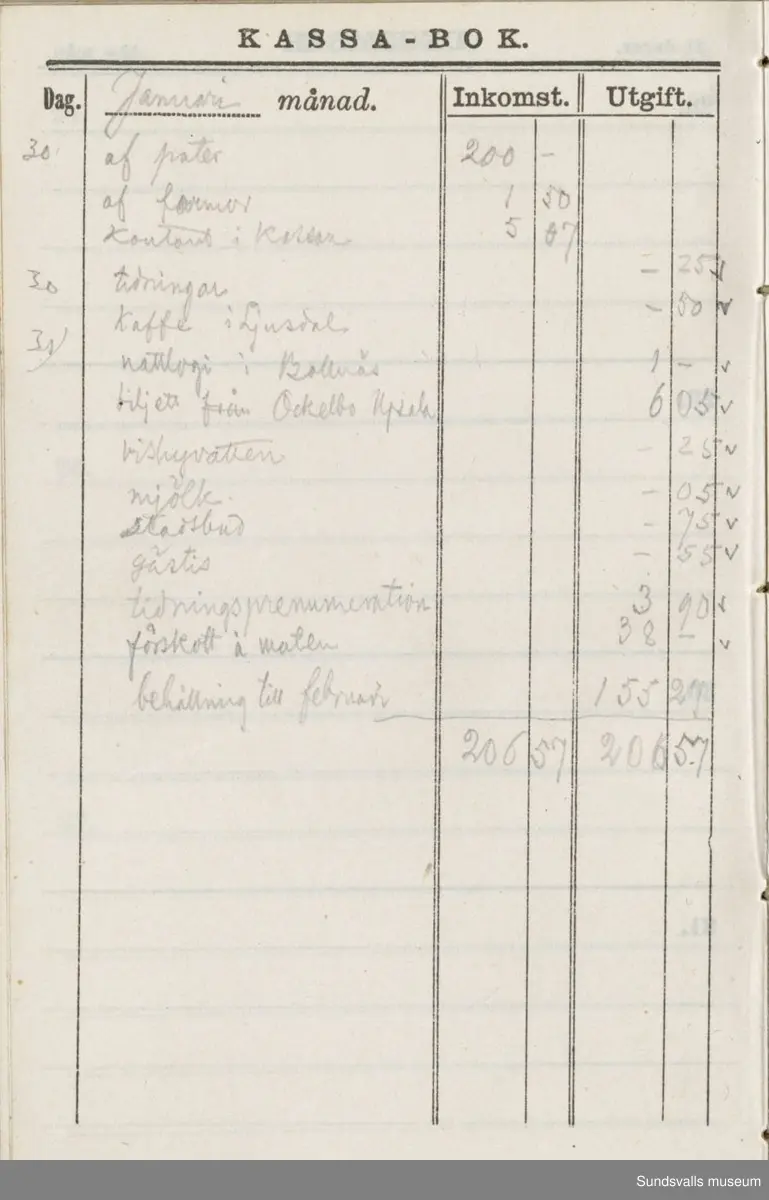 KASSA-BOK.
Dag. Januari månad. Inkomst. Utgift.
30 af pater 200 -
af farmor 1 50
Kontant i Kassan 5 07
30 tidningar - 25 v
Kaffe i Ljusdal - 50 v
31 nattlogi i Bollnäs 1 - v
biljett från Ockelbo Upsala 6 05 v
vishyvatten - 25 v
mjölk - 05 v
stadsbud - 75 v
gästis - 55 v
tidningsprenumeration 3 90 v
förskott å maten 38 - v
behållning till februari 155 27
206 57 206 57
Sundsvalls museum